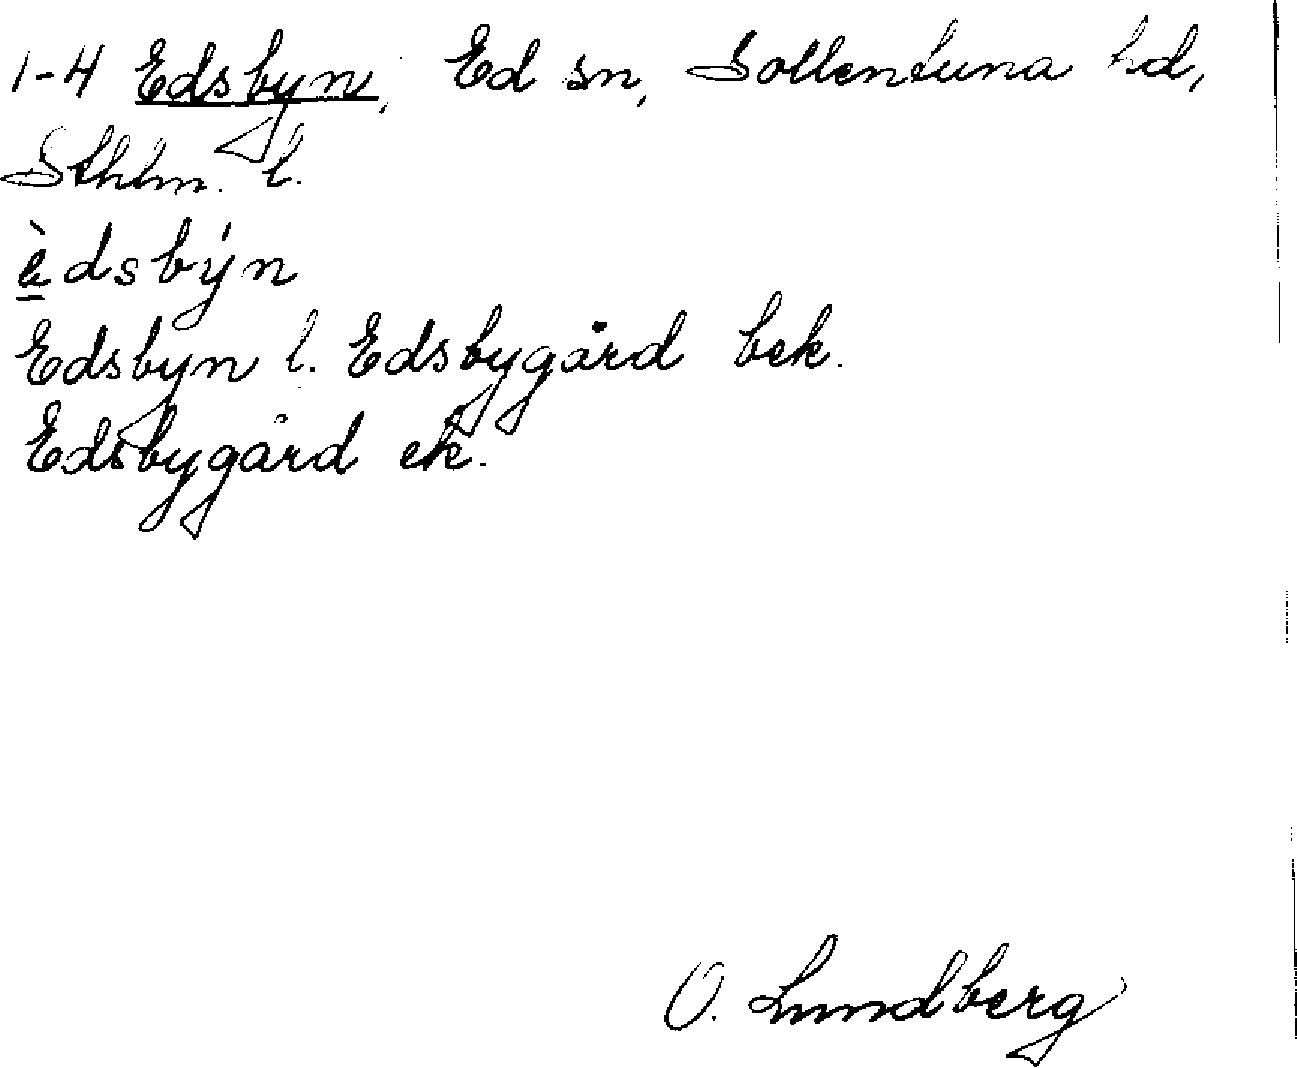 1-4 Edsbyn, Ed sn, Sollentuna hd,
Sthlm. l.
è̲dsbýn
Edsbyn l. Edsbygård bek.
Edsbygård ek.
O. Lundberg